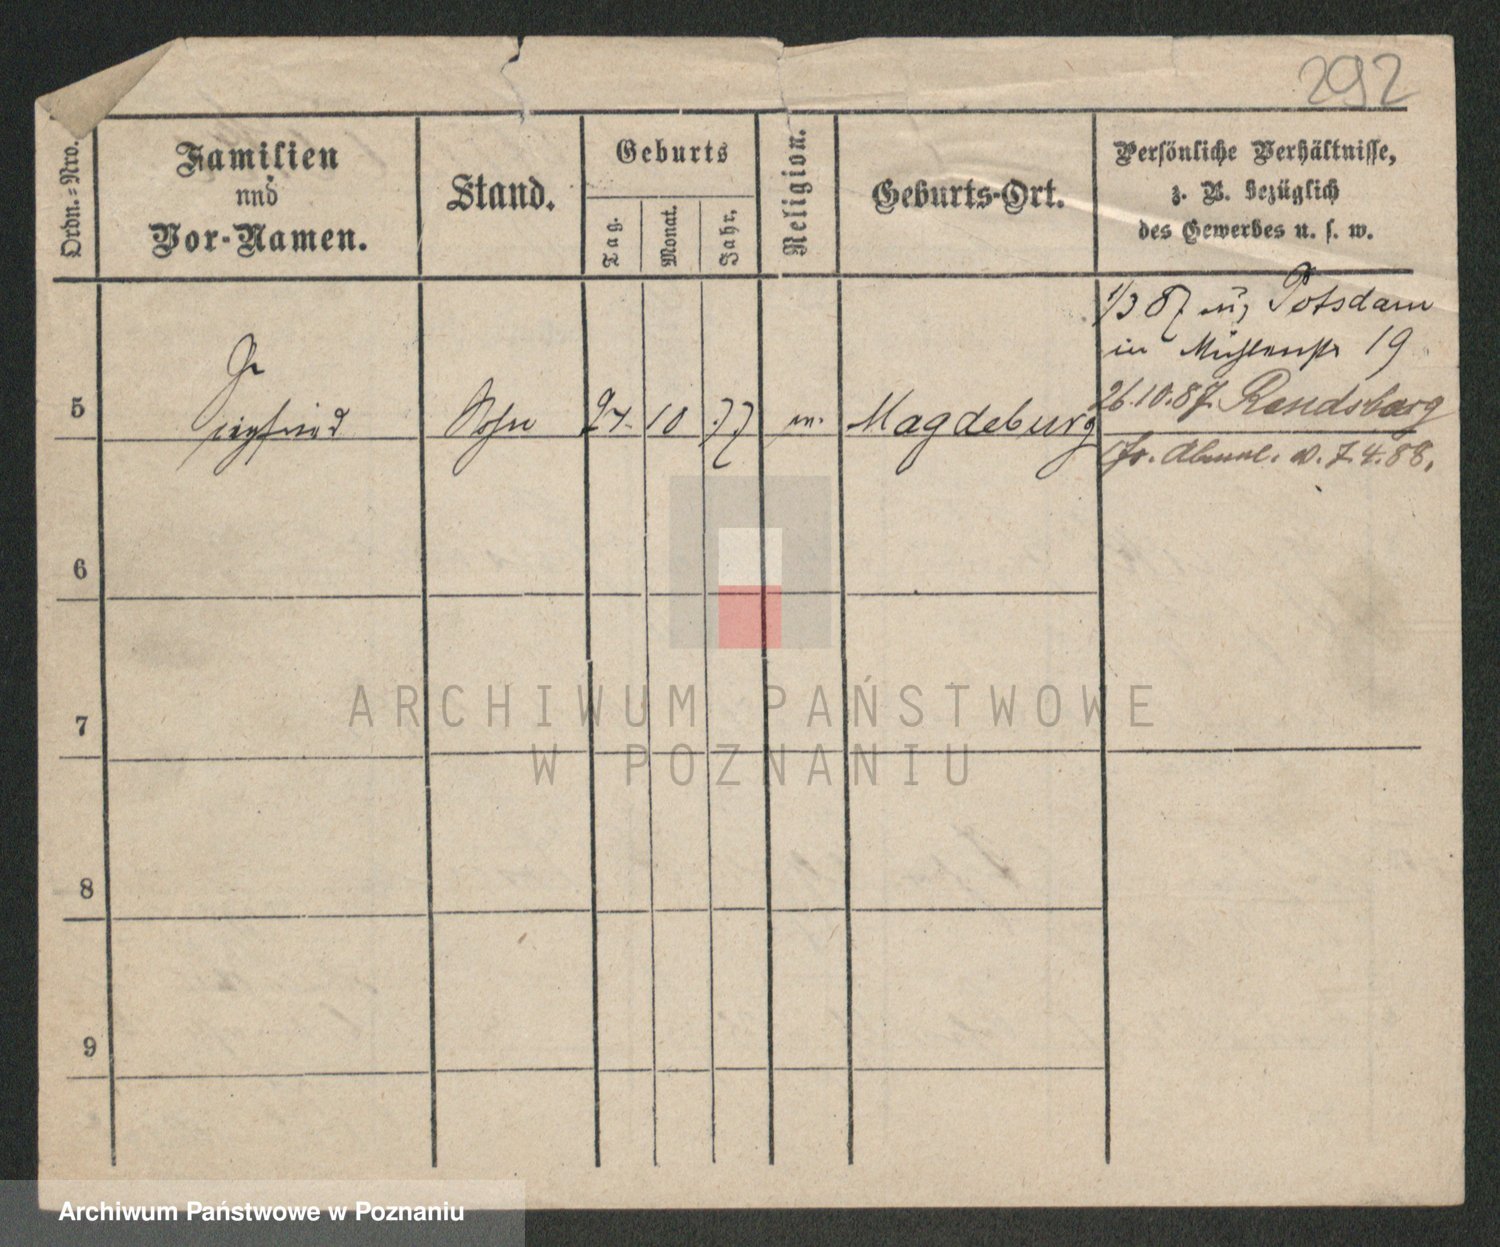 292
Ordn.=Nro.
Familien
und
Vor-Namen.
Stand.
Geburts
Tag.
Monat.
Jahr.
Religion.
Geburts-Ort.
Persönliche Verhältnisse,
z. B. bezüglich
des Gewerbes u. s. w.
1/3 87 Potsdam
in Mühlenstr 19
5
Siegfried
Sohn
24. 10 77
m.
Magdeburg
26.10.87. Rendsburg
fr. Abml. v. 7.4.88.
6
7
8
9
ARCHIWUM PAŃSTWOWE
W POZNANIU
Archiwum Państwowe w Poznaniu